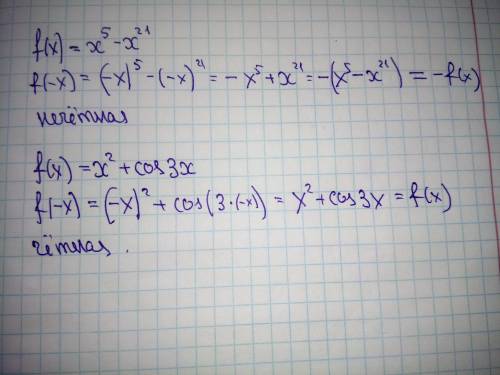 f(x) = x⁵ - x²¹
f(-x) = (-x)⁵ - (-x)²¹ = - x⁵ + x²¹ = -(x⁵ - x²¹) = -f(x)
нечётная
f(x) = x² + cos3x
f(-x) = (-x)² + cos(3·(-x)) = x² + cos3x = f(x)
чётная .